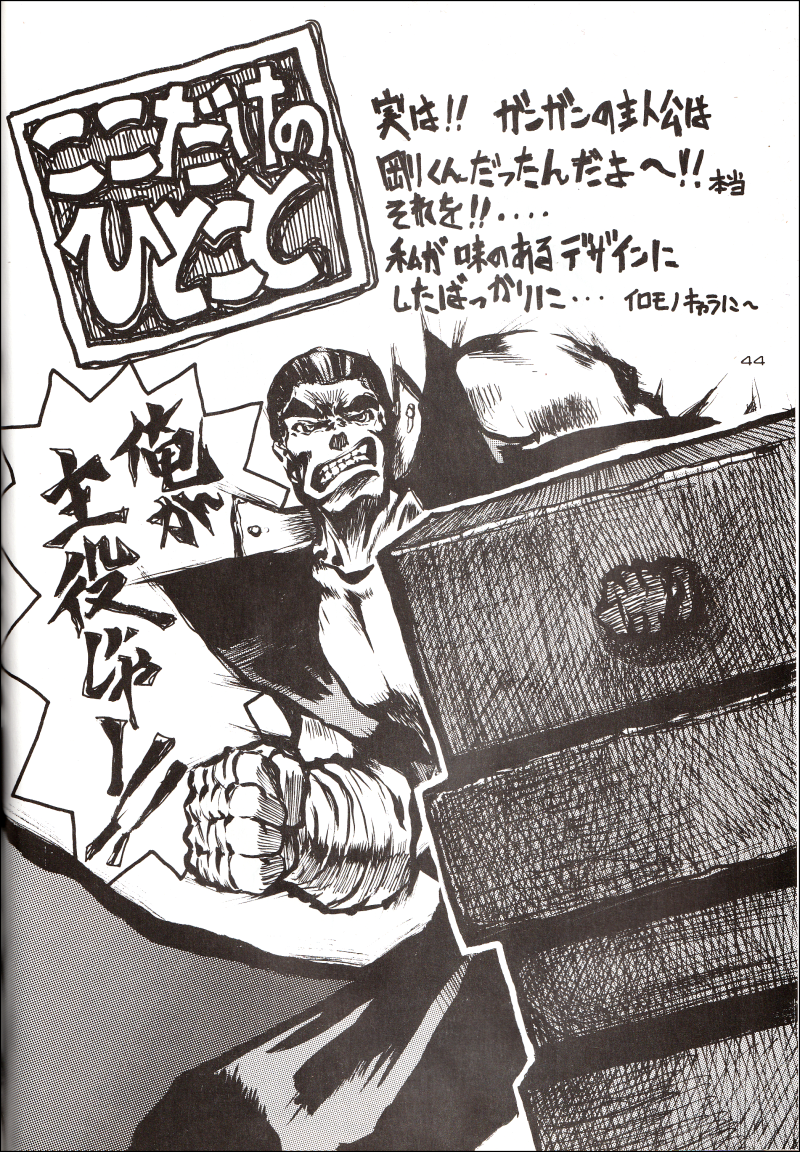 ここだけの
ひとこと
実は!! ガンガンの主人公は
剛くんだったんだよ～!! 本当
それを!!‥‥
私が味のあるデザインに
したばっかりに‥‥ イロモノキャラに～
44
俺が
主役じゃー!!